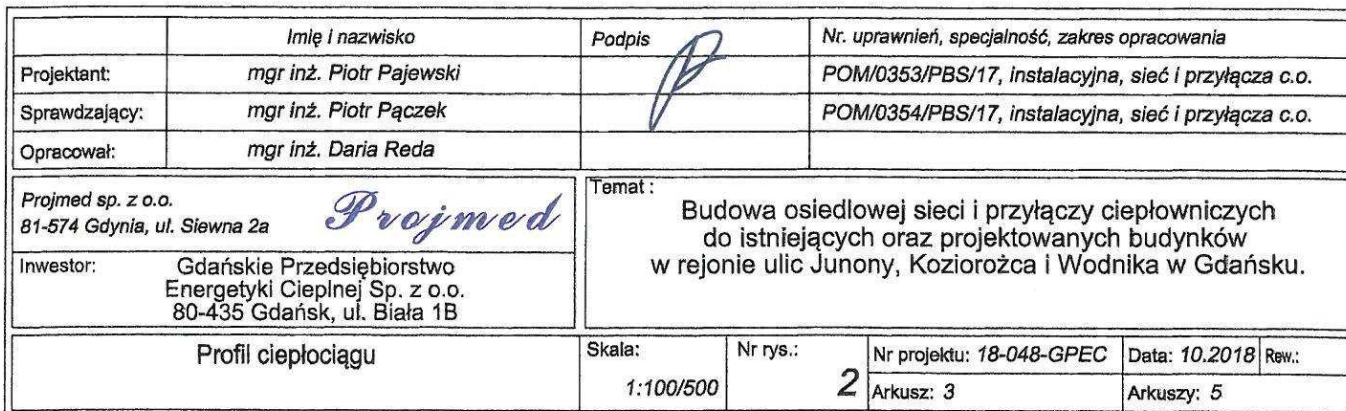 Imię i nazwisko Podpis Nr. uprawnień, specjalność, zakres opracowania
Projektant: mgr inż. Piotr Pajewski POM/0353/PBS/17, instalacyjna, sieć i przyłącza c.o.
Sprawdzający: mgr inż. Piotr Pączek POM/0354/PBS/17, instalacyjna, sieć i przyłącza c.o.
Opracował: mgr inż. Daria Reda
Projmed sp. z o.o.
81-574 Gdynia, ul. Siewna 2a
Projmed
Inwestor: Gdańskie Przedsiębiorstwo
Energetyki Cieplnej Sp. z o.o.
80-435 Gdańsk, ul. Biała 1B
Temat :
Budowa osiedlowej sieci i przyłączy ciepłowniczych
do istniejących oraz projektowanych budynków
w rejonie ulic Junony, Koziorożca i Wodnika w Gdańsku.
Profil ciepłociągu
Skala:
1:100/500
Nr rys.:
2
Nr projektu: 18-048-GPEC Data: 10.2018 Rew.:
Arkusz: 3 Arkuszy: 5